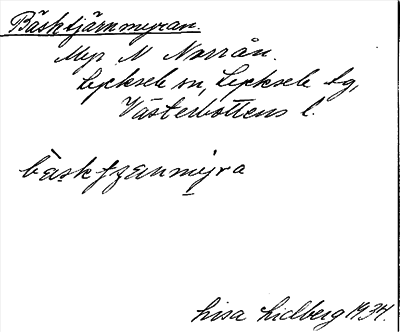 Bäsktjärnmyran.
Myr N Norrån.
Lycksele sn, Lycksele tg,
Västerbottens l.
bäsktʒanmyra
Lisa Lidberg 1934.